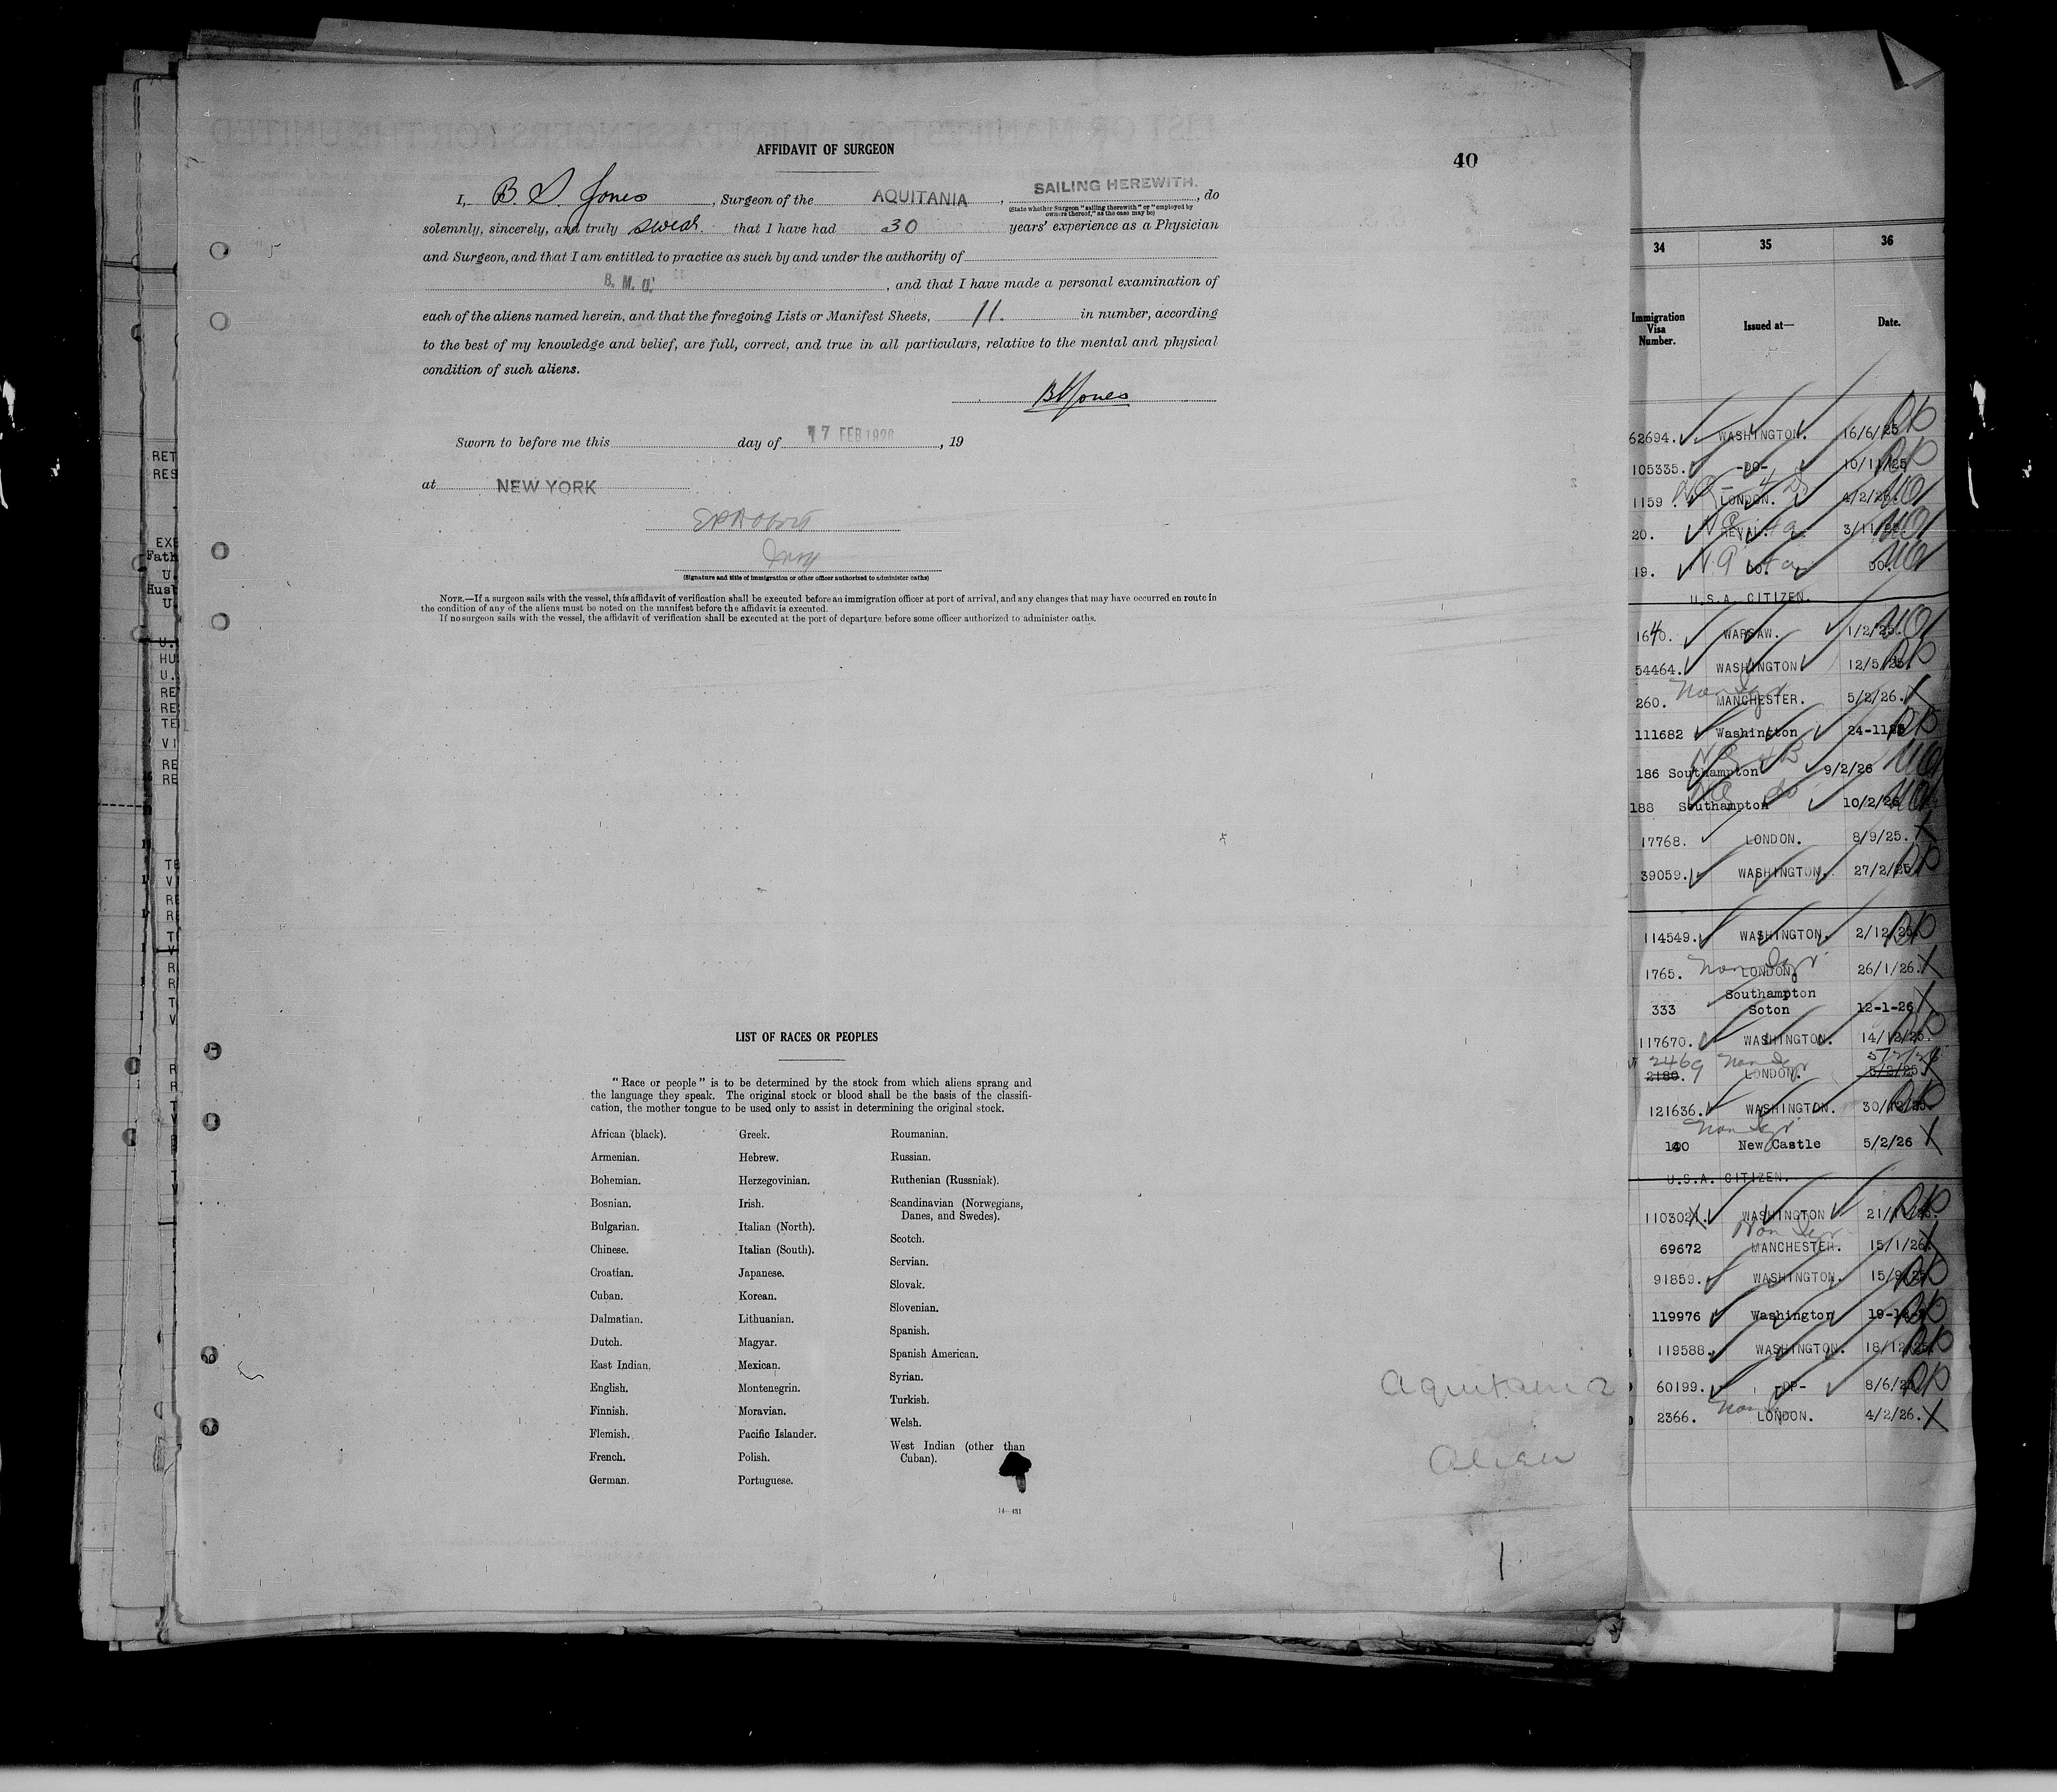 AFFIDAVIT OF SURGEON
40
I, B. S. Jones, Surgeon of the AQUITANIA, SAILING HEREWITH., do
(State whether Surgeon "sailing therewith" or "employed by
owners thereof," as the case may be)
solemnly, sincerely, and truly swear. that I have had 30 years' experience as a Physician
and Surgeon, and that I am entitled to practice as such by and under the authority of
B. M. U., and that I have made a personal examination of
each of the aliens named herein, and that the foregoing Lists or Manifest Sheets, 11. in number, according
to the best of my knowledge and belief, are full, correct, and true in all particulars, relative to the mental and physical
condition of such aliens.
BSJones
Sworn to before me this day of 17 FEB 1926, 19
at NEW YORK
(Signature and title of immigration or other officer authorized to administer oaths)
NOTE.—If a surgeon sails with the vessel, this affidavit of verification shall be executed before an immigration officer at port of arrival, and any changes that may have occurred en route in
the condition of any of the aliens must be noted on the manifest before the affidavit is executed.
If no surgeon sails with the vessel, the affidavit of verification shall be executed at the port of departure before some officer authorized to administer oaths.
LIST OF RACES OR PEOPLES
"Race or people" is to be determined by the stock from which aliens sprang and
the language they speak. The original stock or blood shall be the basis of the classifi-
cation, the mother tongue to be used only to assist in determining the original stock.
African (black).
Armenian.
Bohemian.
Bosnian.
Bulgarian.
Chinese.
Croatian.
Cuban.
Dalmatian.
Dutch.
East Indian.
English.
Finnish.
Flemish.
French.
German.
Greek.
Hebrew.
Herzegovinian.
Irish.
Italian (North).
Italian (South).
Japanese.
Korean.
Lithuanian.
Magyar.
Mexican.
Montenegrin.
Moravian.
Pacific Islander.
Polish.
Portuguese.
Roumanian.
Russian.
Ruthenian (Russniak).
Scandinavian (Norwegians,
Danes, and Swedes).
Scotch.
Servian.
Slovak.
Slovenian.
Spanish.
Spanish American.
Syrian.
Turkish.
Welsh.
West Indian (other than
Cuban).
14—431
Aquitania
Alien
1
34 35 36
Immigration
Visa
Number.
Issued at—
Date.
62694. WASHINGTON. 16/6/25
105335. -DO- 10/11/25
1159. LONDON. 4/2/26.
20. REVAL.
19. DO. DO.
U.S.A. CITIZEN.
1640. WARSAW. 1/2/26.
54464. WASHINGTON 12/5/25.
260. MANCHESTER. 5/2/26.
111682 Washington 24-11
186 Southampton 9/2/26
188 Southampton 10/2/26
17768. LONDON. 8/9/25.
39059. WASHINGTON. 27/2/25
114549. WASHINGTON. 2/12/25
1765. LONDON. 26/1/26.
Southampton
333 Soton 12-1-26
117670. WASHINGTON. 14/12/25.
2469 5/2/26
2180. LONDON. 5/2/25.
121636. WASHINGTON. 30/12/25.
140 New Castle 5/2/26
U.S.A. CITIZEN.
WASHINGTON
69672 MANCHESTER. 15/1/26
91859. WASHINGTON. 15/9/25
119976 Washington
119588. WASHINGTON. 18/12/25
60199. -DO- 8/6/25
2366. LONDON. 4/2/26.